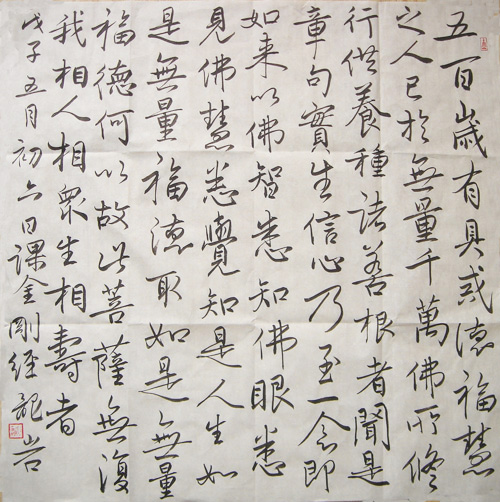 五百歲有具戒德福慧
之人已於無量千萬佛所修
行供養種諸善根者聞是
章句實生信心乃至一念即
如来以佛智悉知佛眼悉
見佛慧悉覺知是人生如
是無量福德取如是無量
福德何以故此菩薩無復
我相人相眾生相壽者
戊子五月初六日課金剛經龍岩